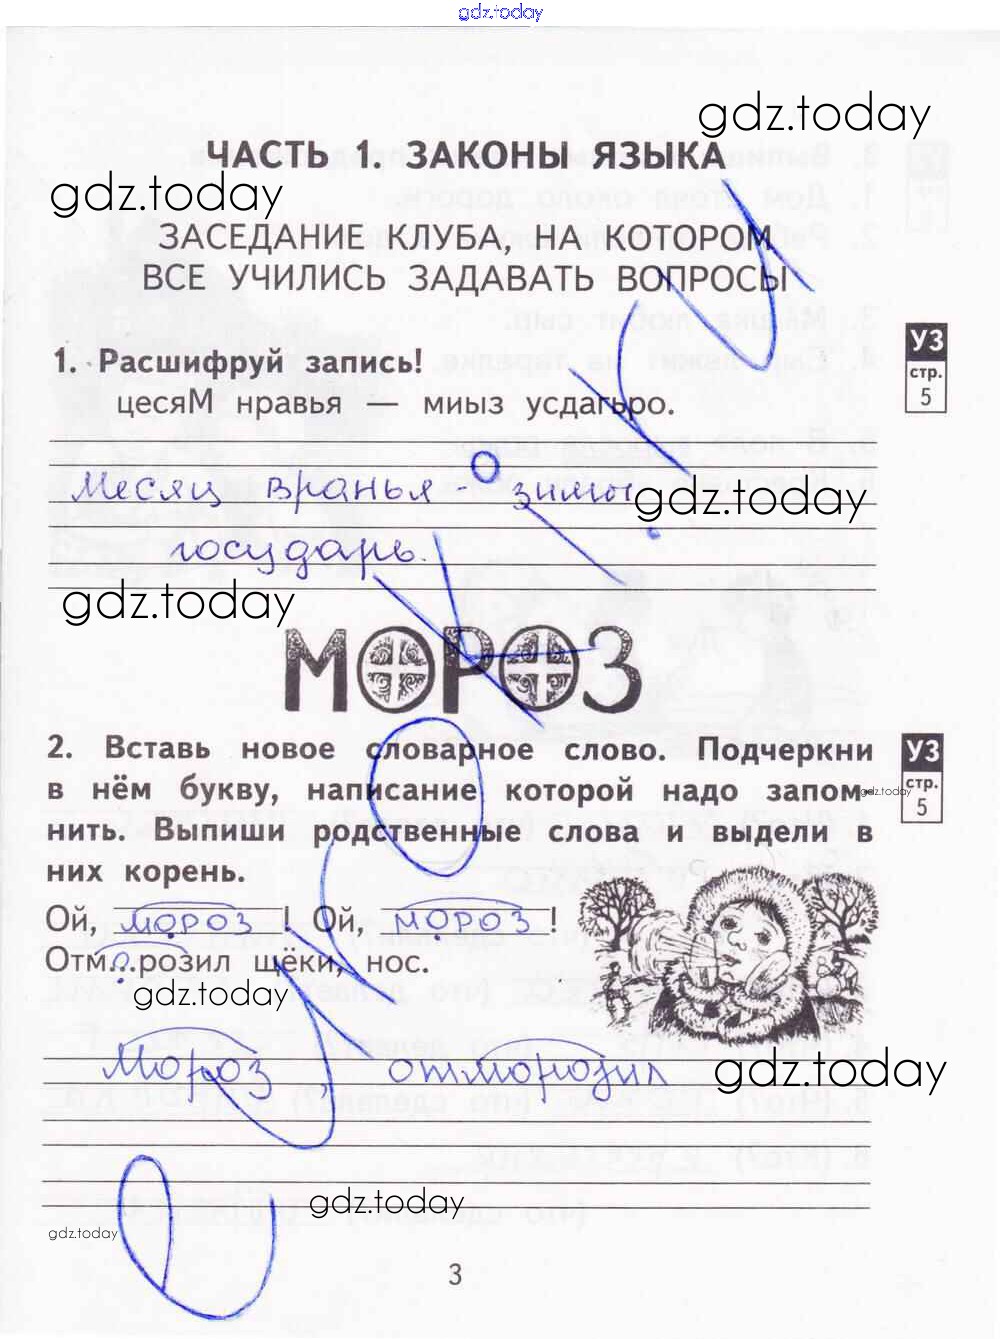 gdz.today
gdz.today
ЧАСТЬ 1. ЗАКОНЫ ЯЗЫКА
gdz.today
ЗАСЕДАНИЕ КЛУБА, НА КОТОРОМ
ВСЕ УЧИЛИСЬ ЗАДАВАТЬ ВОПРОСЫ
1. Расшифруй запись!
УЗ
стр.
5
цесяМ нравья — миыз усдагьро.
Месяц вранья - зимы
gdz.today
государь.
gdz.today
МОРОЗ
2. Вставь новое словарное слово. Подчеркни
УЗ
стр.
5
в нём букву, написание которой надо запом-
gdz.today
нить. Выпиши родственные слова и выдели в
них корень.
Ой, мороз ! Ой, мороз !
Отм..о.розил щёки, нос.
gdz.today
Мороз отморозил
gdz.today
gdz.today
gdz.today
3